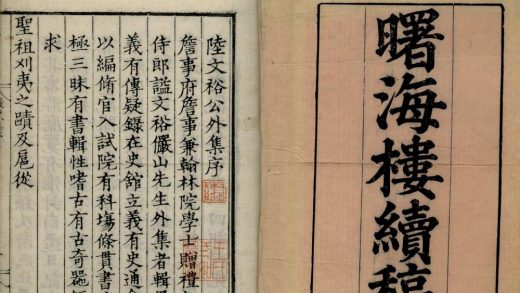 曙海樓續稿
陸文裕公外集序
詹事府詹事兼翰林院學士贈禮
侍郎謚文裕儼山先生外集者輯
義有傳疑録在史舘立義有史通
以編脩官入試院有科塲條貫書
極三昧有書輯性嗜古有古奇噐
求
聖祖刈夷之蹟及扈從